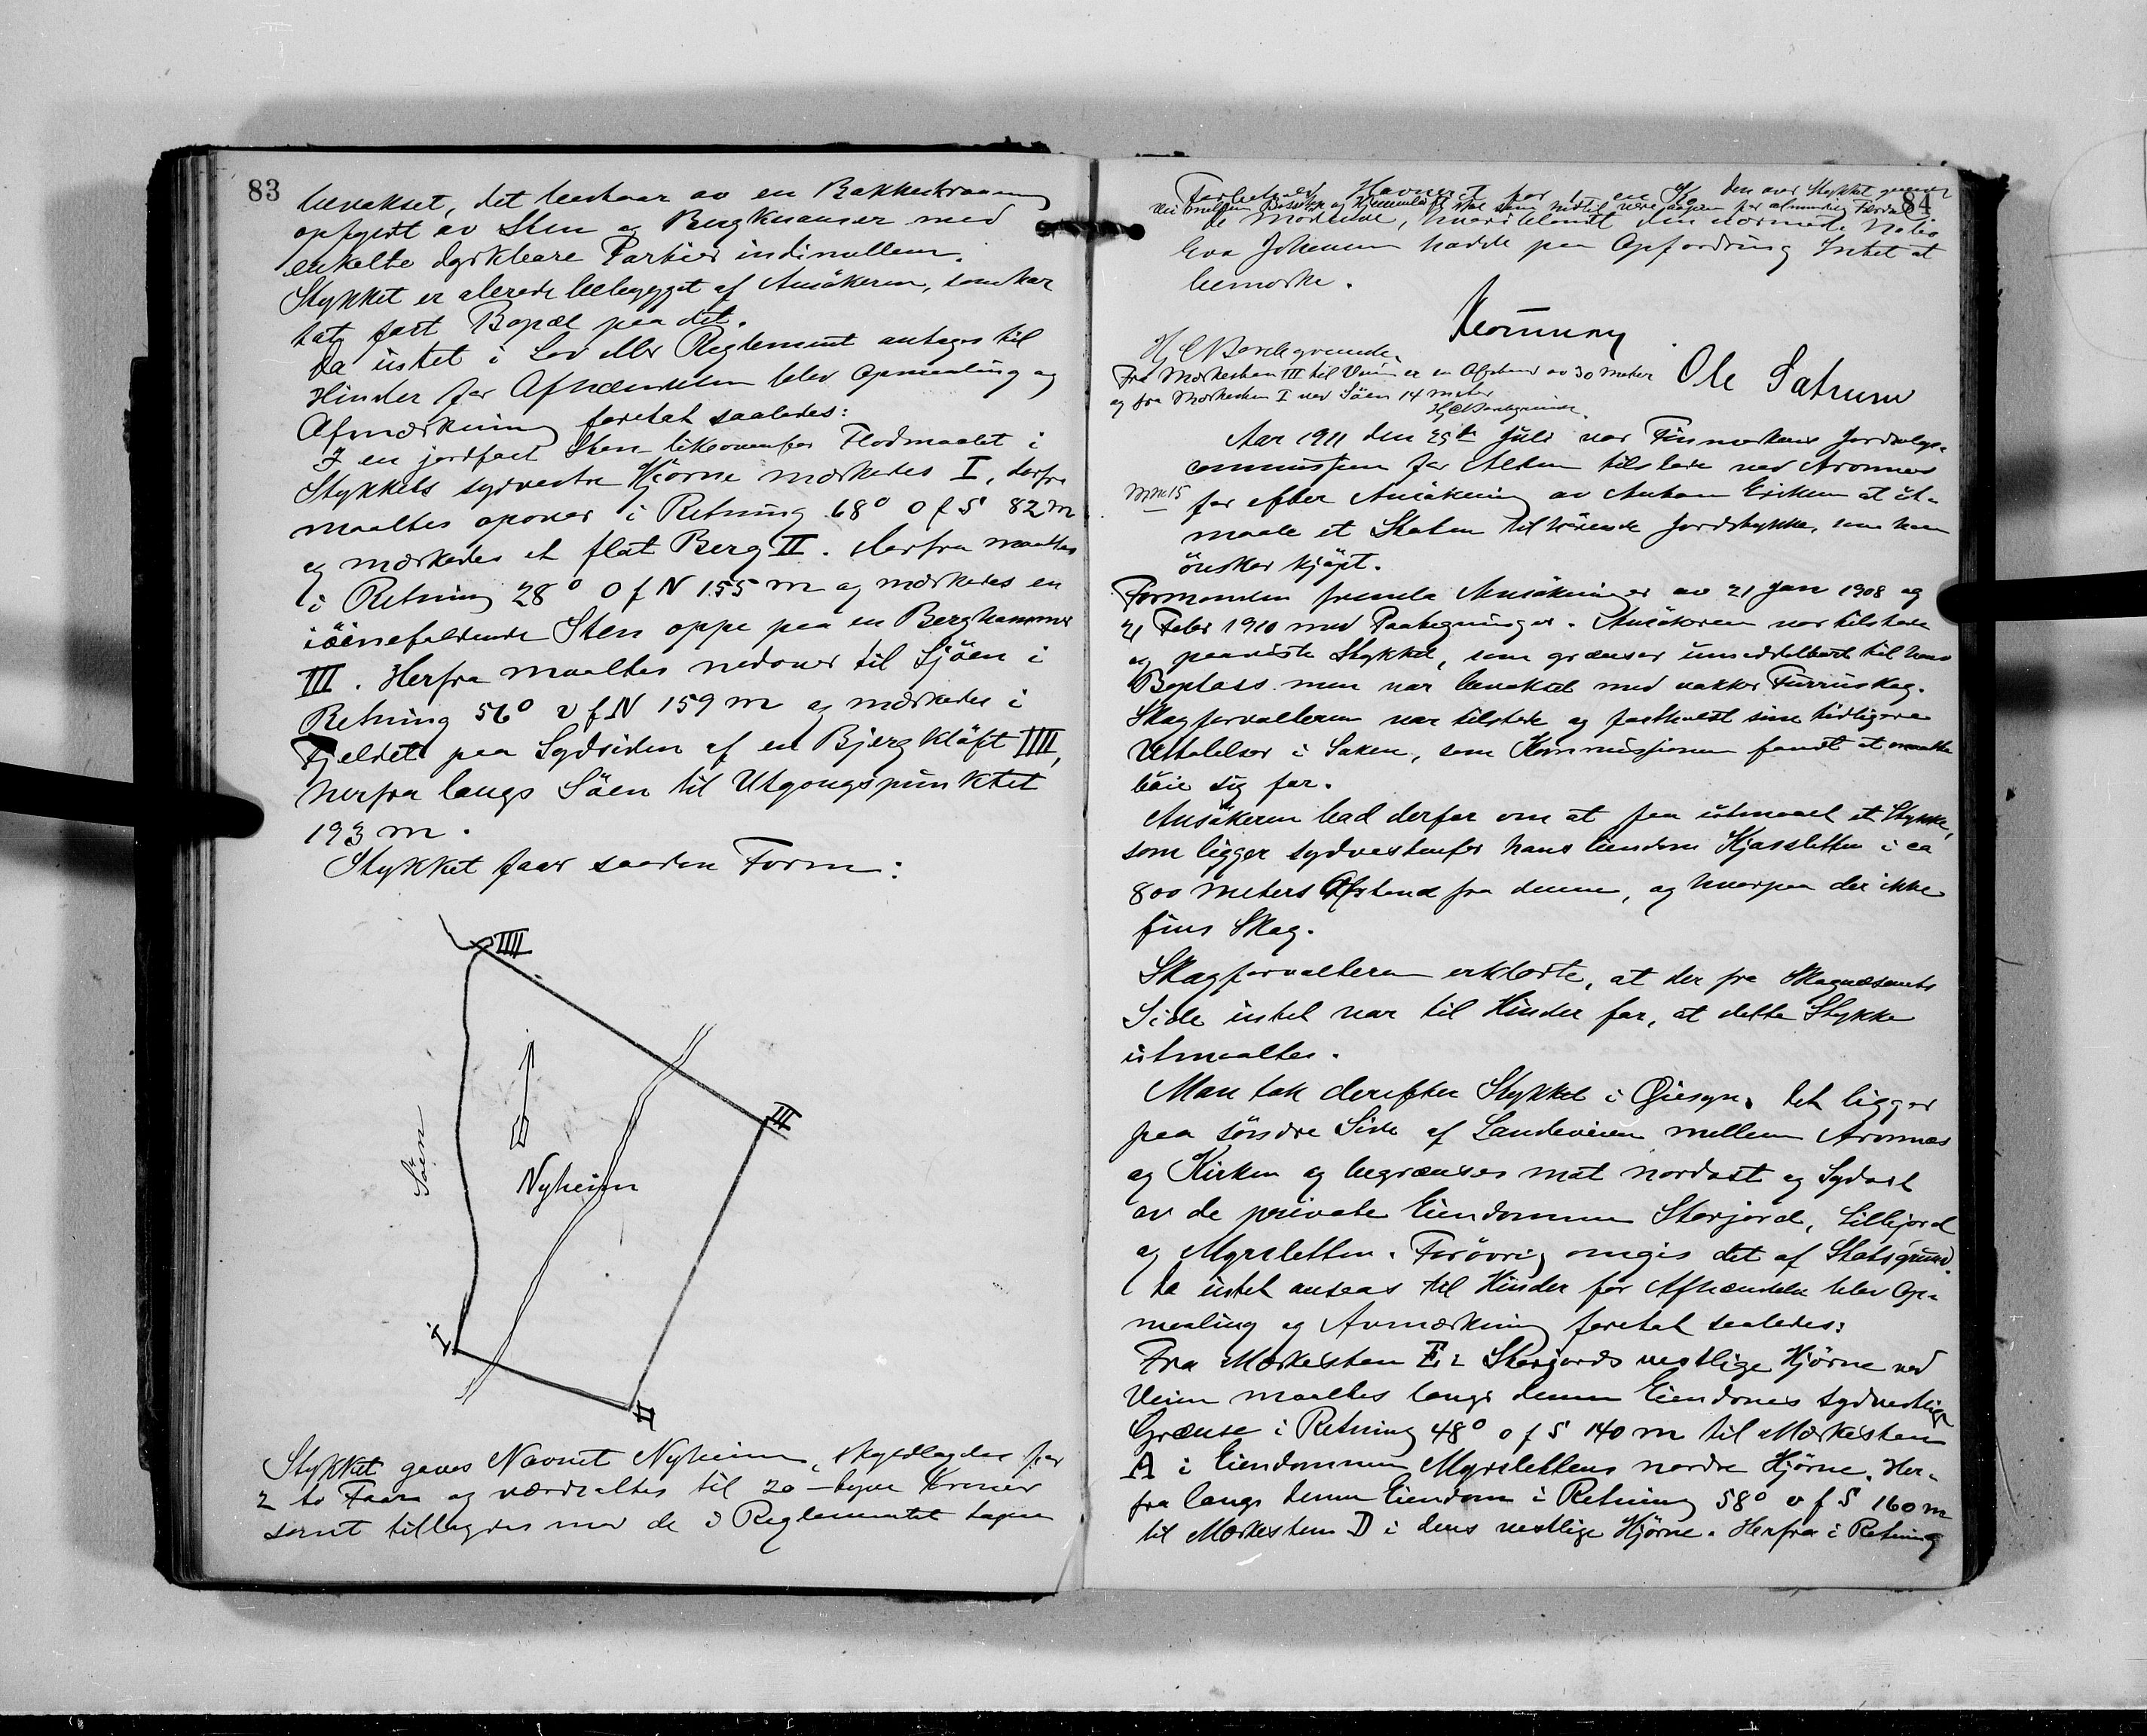 83
bevokset, det bestaar av en Bakkeskraaning
opfyldt av Sten og Bergknauser med
enkelte dyrkbare Partier indimellem.
Stykket er allerede bebygget af Ansökeren, som har
tat fast Bopæl paa det.
Da intet i Lov eller Reglement antages til
Hinder for Afhændelsen blev Opmaaling og
Afmærkning foretat saaledes:
I en jordfast Sten like ovenfor Flodmaalet i
Stykkets sydvestre Hjörne mærkedes I, derfra
maaltes opover i Retning 68° O f S 82 m
og mærkedes et flat Berg II. Derfra maaltes
i Retning 28° O f N 155 m og mærkedes en
iöinefaldende Sten oppe paa en Berghammer
III. Herfra maaltes nedover til Sjöen i
Retning 56° v f N 159 m og mærkedes i
Fjeldet paa Sydsiden af en Bjergkløft IIII,
herfra langs Söen til Utgangspunktet
193 m.
Stykket faar saadan Form:
IIII
III
Söen
Nyheim
I
II
Stykket gaves Navnet Nyheim, skyldlagdes for
2 to Fär og værdsattes til 20 - tyve Kroner
samt tillagdes med de i Reglementet tagne
84
Forbehold Havneret for en Ko den over Stykket gaaende
Vei mellem og skal som hidtil være aapen for almindelig Færdsel.
De Mødende, hvoriblandt den nærmeste Nabo
Eva Johansen hadde paa Opfordring Intet at
bemærke.
Ole Sætrum
Fra Mærkesten III til Veien er en Afstand av 30 meter
og fra Mærkesten I ved Söen 14 meter
Aar 1911 den 25de Juli var Finmarkens Jordsalgs-
commission for Alten tilstede ved Aronnes
for efter Ansökning av Anton Eriksen at ut-
maale et Staten tilhörende Jordstykke, som han
önsker kjøpt.
Formanden fremla Ansökninger av 21 Jan 1908 og
21 Febr 1910 med Paategninger. Ansökeren var tilstede
og paaviste Stykket, som grænser umiddelbart til hans
Boplass men var bevokset med vakker Furruskog.
Skogforvalteren var tilstede og fastholdt sine tidligere
Uttalelser i Saken, som Kommissionen fandt at maatte
böie sig for.
Ansökeren bad derfor om at faa utmaalt et Stykke,
som ligger sydvestenfor hans Eiendom Hjassletten i ca
800 meters Afstand fra denne, og hvorpaa der ikke
fins Skog.
Skogforvalteren erklærte, at der fra Skogvæsenets
Side intet var til Hinder for, at dette Stykke
utmaaltes.
Man tok derefter Stykket i Øiesyn. Det ligger
paa söndre Side af Landeveien mellem Aronnes
og Kirken og begrænses mot nordost og Sydost
av de private Eiendommer Storjord, Lillejord
og Myrsletten. Forövrig omgis det af Statsgrund.
Da intet ansaas til Hinder for Afhændelse blev Op-
maaling og Avmærkning foretat saaledes:
Fra Mærkesten E i Storjords vestlige Hjørne ved
Veien maaltes langs denne Eiendoms sydvestlige
Grænse i Retning 48° o f S 140 m til Mærkesten
A i Eiendommen Myrslettens nordre Hjørne. Her-
fra langs denne Eiendom i Retning 58° v f S 160 m
til Mærkesten D i dens vestlige Hjørne. Herfra i Retning